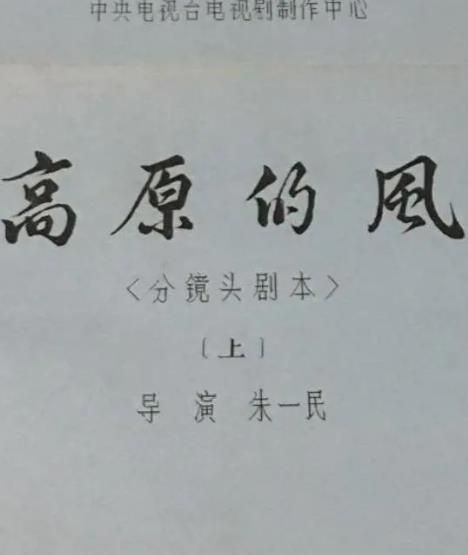 中央电视台电视剧制作中心
高原的風
〈分镜头剧本〉
〔上〕
导演 朱一民